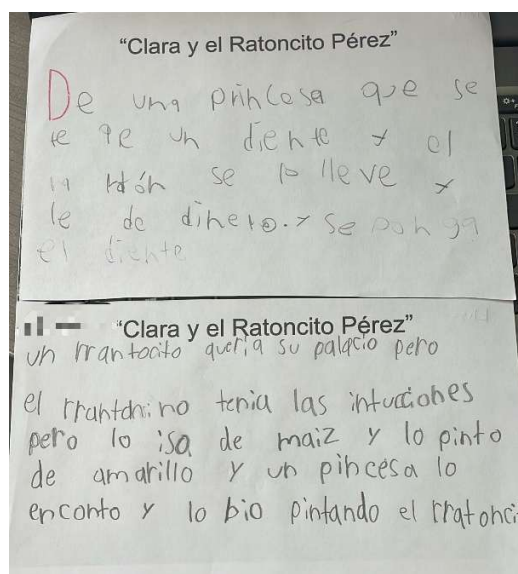 “Clara y el Ratoncito Pérez”
De una princesa que se
le qe un diente y el
ratón se lo lleve y
le de dinero. y se ponga
el diente
“Clara y el Ratoncito Pérez”
un rrantocito queria su palacio pero
el rrantonino tenia las intucciones
pero lo isa de maiz y lo pinto
de amarillo y un pincesa lo
enconto y lo bio pintando el rratonci